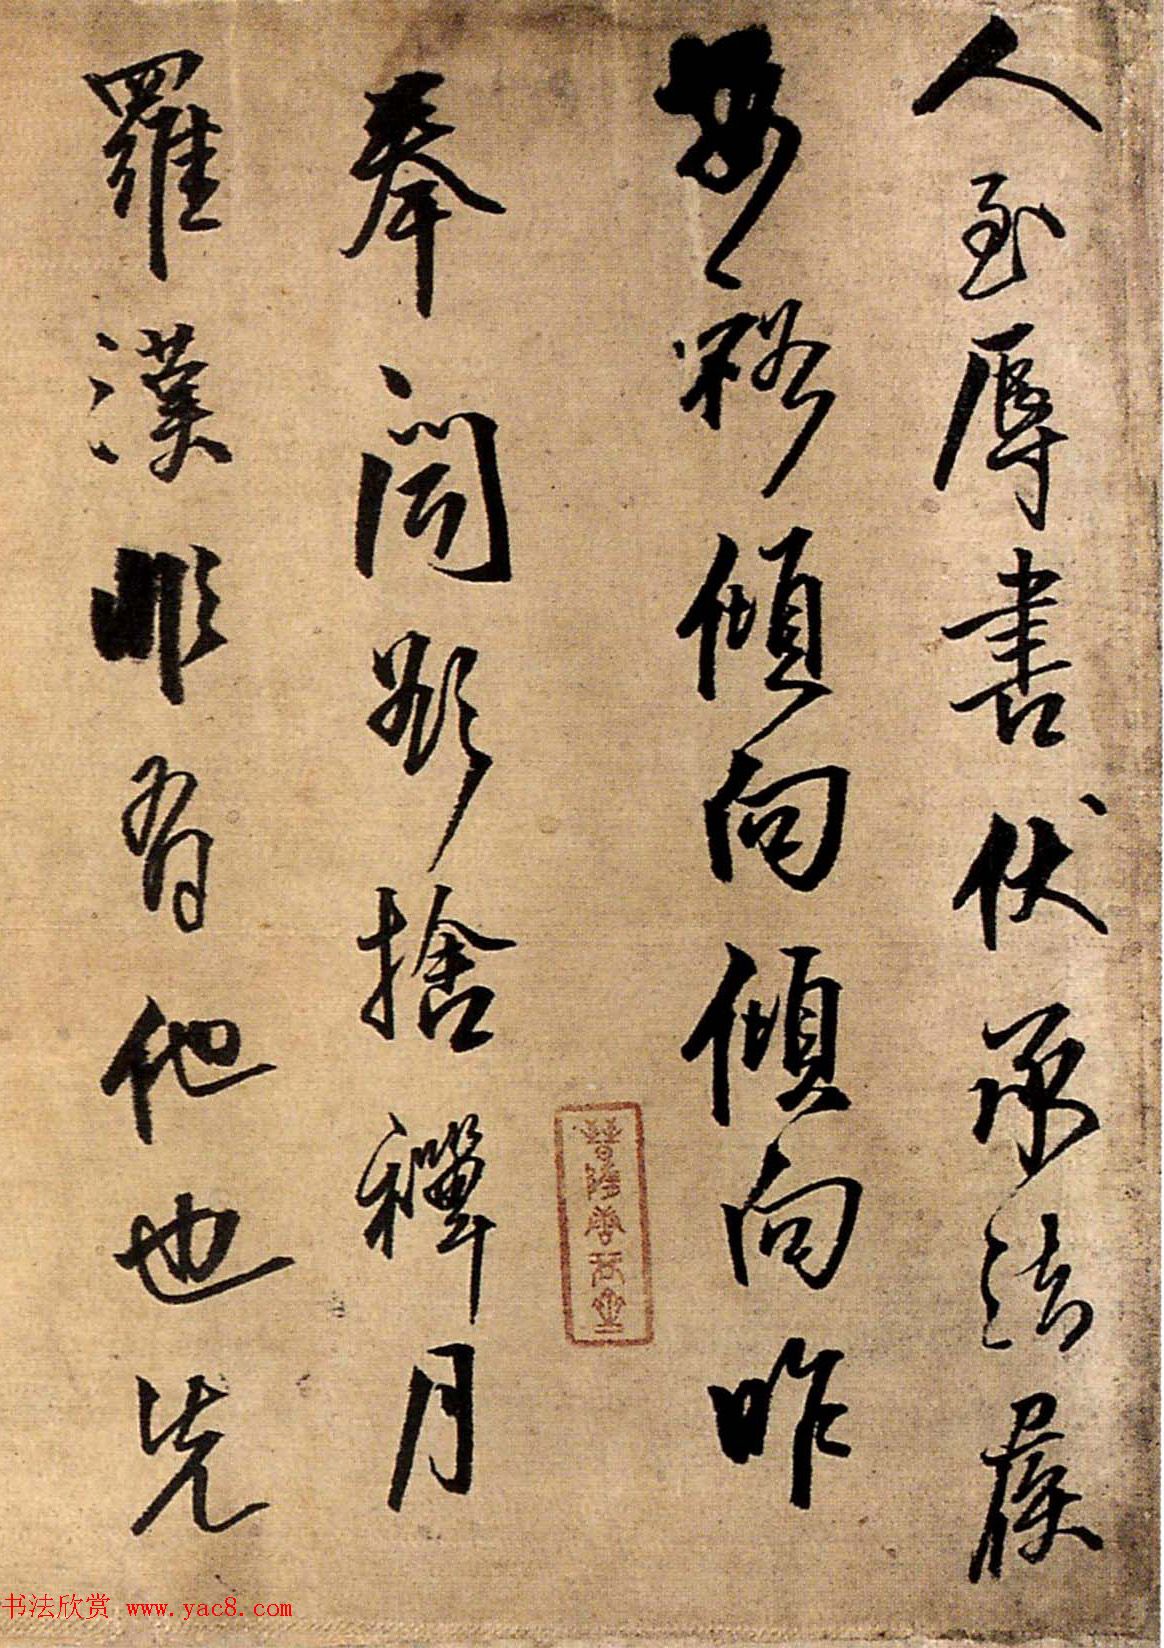 人至辱書伏承法履
安裕傾向傾向昨
奉聞欲捨禪月
羅漢非有他也先
书法欣赏 www.yac8.com